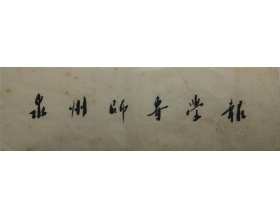 泉州师专学报